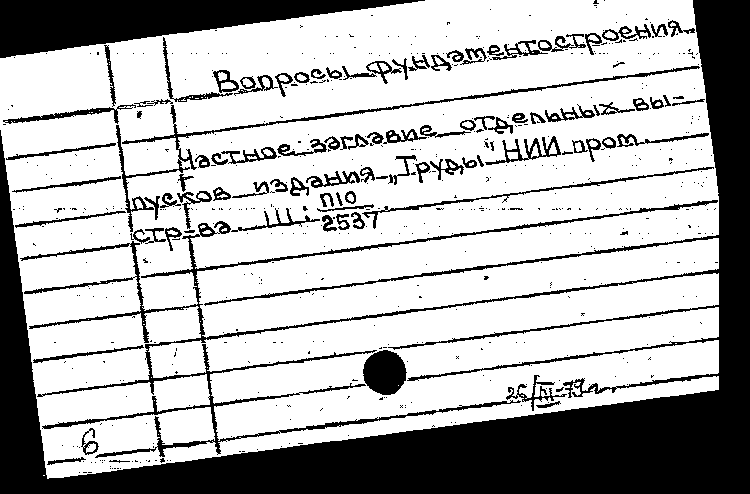 Вопросы фундаментостроения
Частное заглавие отдельных вы-
пусков издания „Труды" НИИ пром.
стр-ва. Ш: П10/2537.
26/III-79г.
6